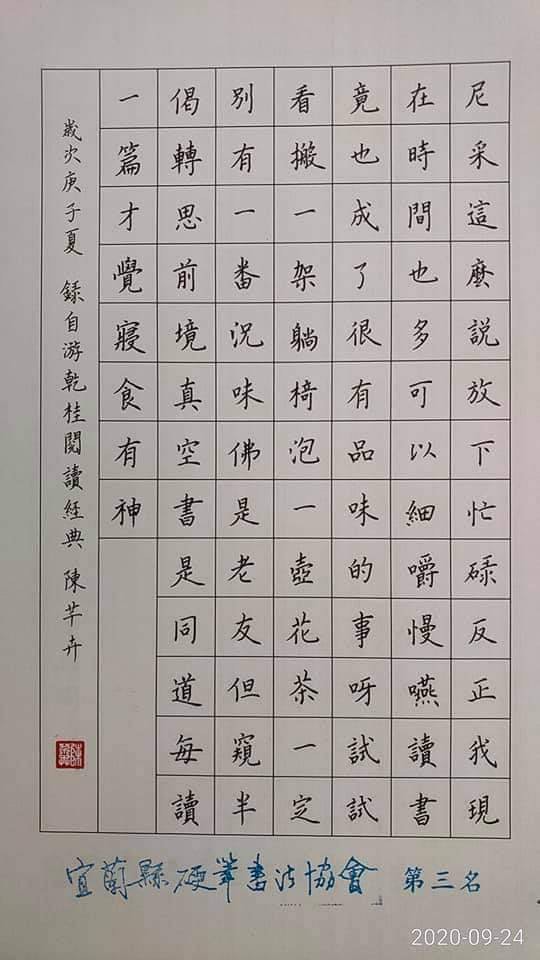 尼采這麼說放下忙碌反正我現
在時間也多可以細嚼慢嚥讀書
竟也成了很有品味的事呀試試
看搬一架躺椅泡一壺花茶一定
別有一番況味佛是老友但窺半
偈轉思前境真空書是同道每讀
一篇才覺寢食有神
歲次庚子夏 錄自游乾桂閱讀經典 陳芊卉
宜蘭縣硬筆書法協會 第三名
2020-09-24